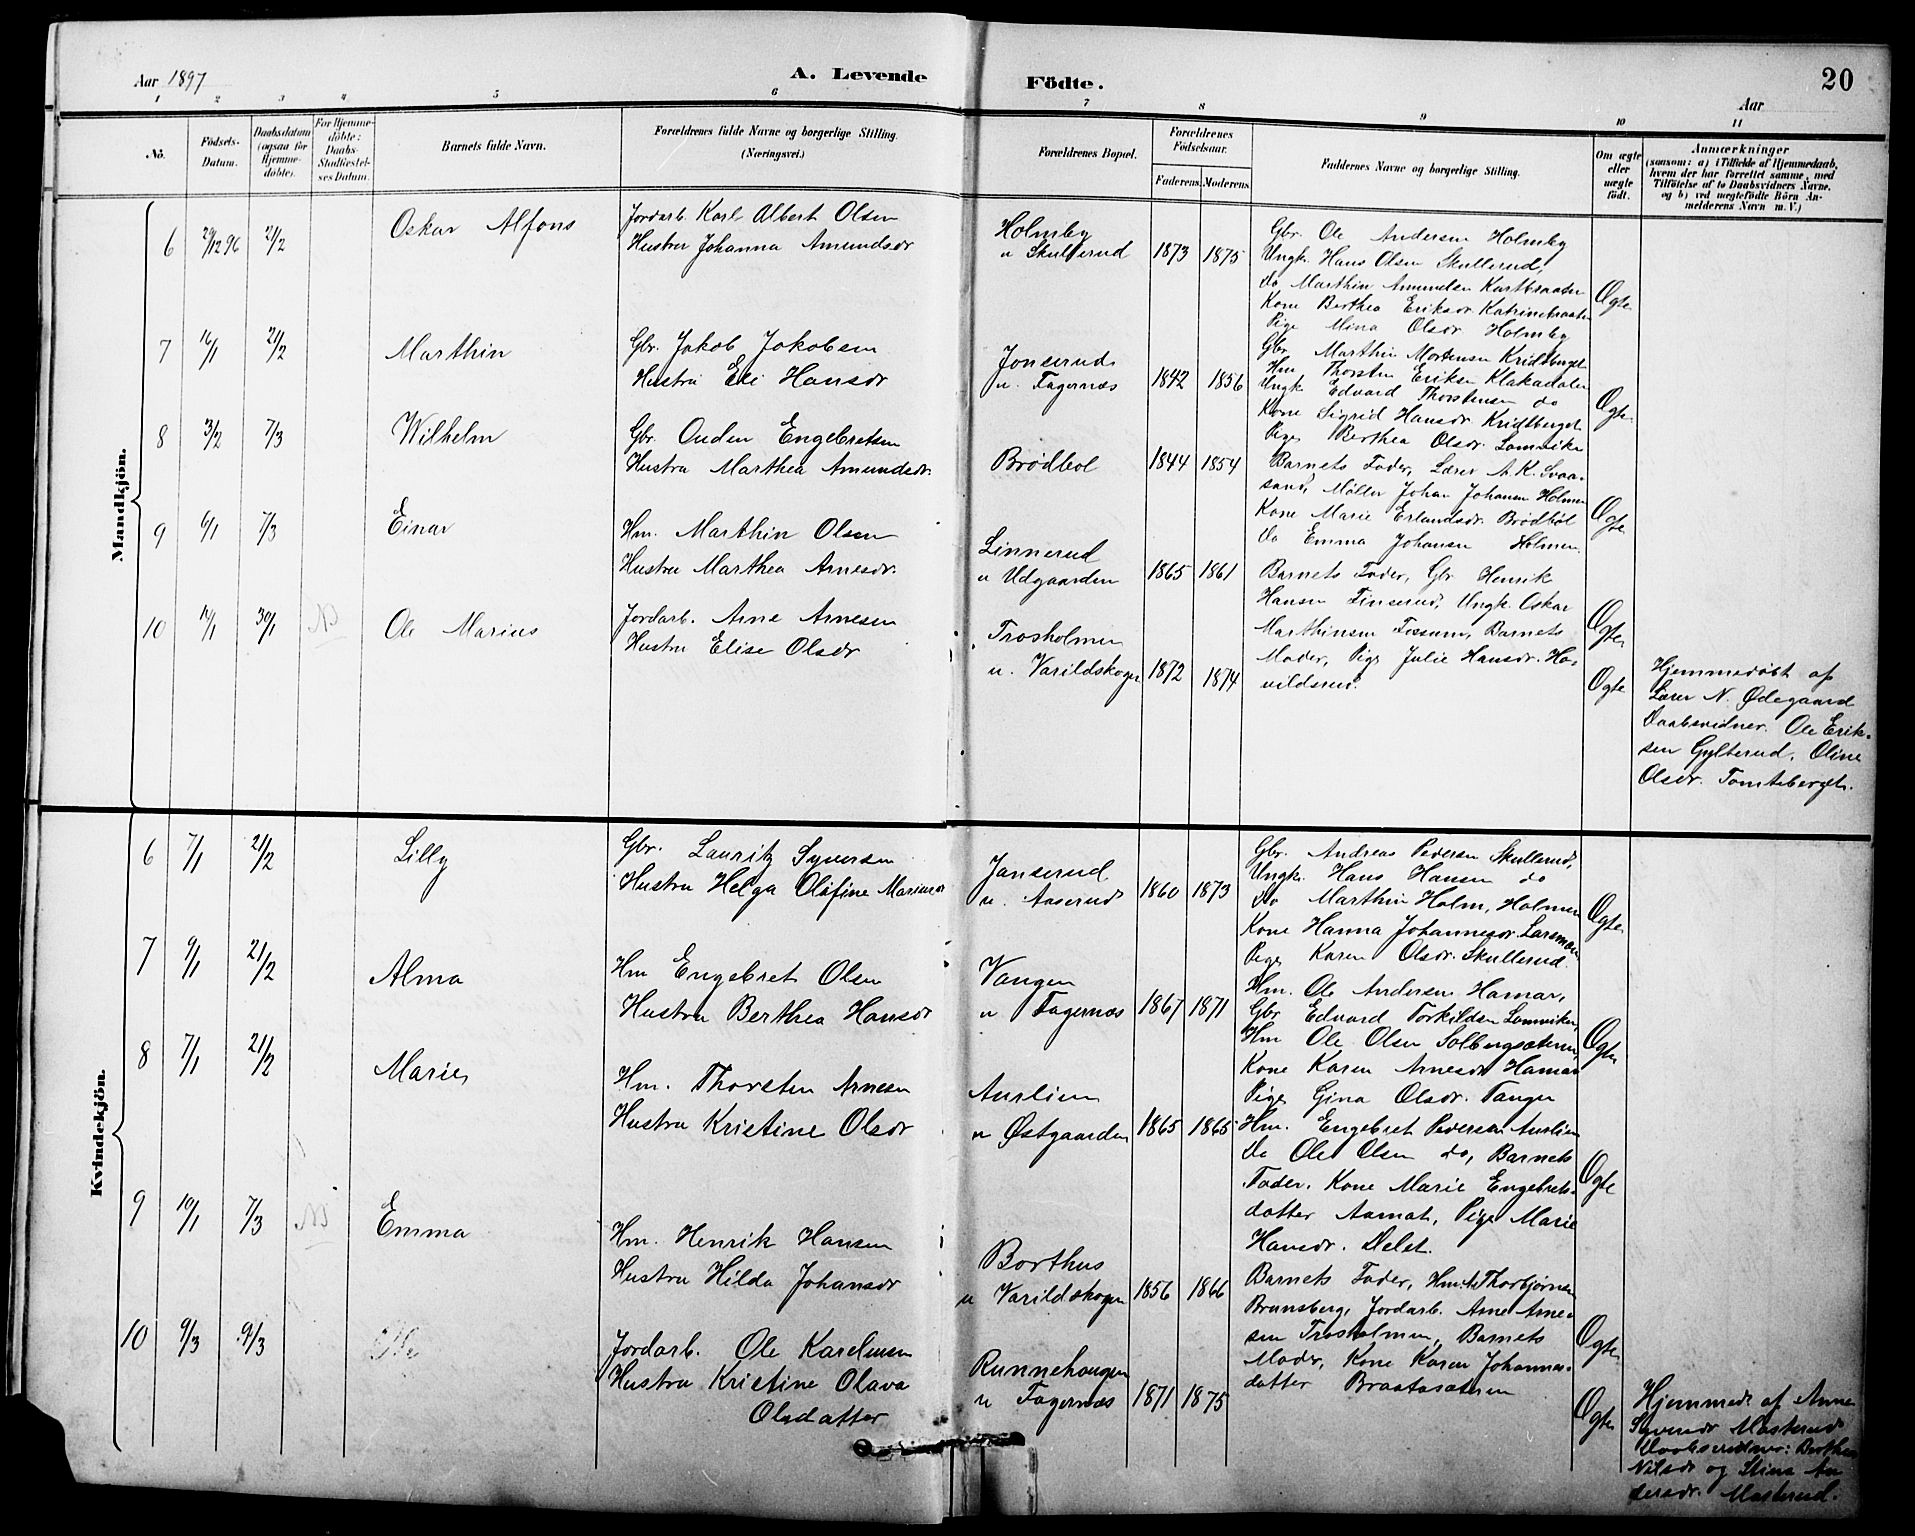 Aar 1897
A. Levende Födte.
20
Aar
1 2 3 4 5 6 7 8 9 10 11
No.
Födsels-
Datum.
Daabsdatum
(ogsaa for
Hjemme-
döbte).
For Hjemme-
döbte:
Daabs-
Stadfæstel-
ses Datum.
Barnets fulde Navn.
Forældrenes fulde Navne og borgerlige Stilling.
(Næringsvei.)
Forældrenes Bopæl.
Forældrenes
Födselsaar.
Faderens. Moderens.
Faddernes Navne og borgerlige Stilling.
Om ægte
eller
uægte
födt.
Anmærkninger
(saasom: a) i Tilfælde af Hjemmedaab,
hvem der har forrettet samme, med
Tilföielse af to Daabsvidners Navne,
og b) ved uægtefödte Börn An-
melderens Navn m. V.)
Mandkjön.
6 29/12 96 21/2 Oskar Alfons
Jordarb. Karl Albert Olsen
Hustru Johanna Amundsdr
Holmby
u Skullerud 1873 1875
Gbr. Ole Andersen Holmby
Ungk. Hans Olsen Skullerud,
do Marthin Amundsen
Kone Berthea Eriksdr.
Pige Mina Olsdr Holmby
Ægte
7 16/1 21/2 Marthin
Gbr. Jakob Jakobsen
Hustru Eli Hansdr
Jonserud
u. Fagernæs 1842 1856
Gbr. Marthin Mortensen Kridtberget
Hm Thorsten Eriksen Klakadalen
Ungk Edvard Thorstensen do
Kone Sigrid Hansdr. Kridtberget
Pige Berthea Olsdr. Lomviken
Ægte
8 3/2 7/3 Wilhelm
Gbr. Ouden Engebretsen
Hustru Marthea Amundsdr.
Brødbøl 1844 1854
Barnets Fader, Lærer A. K. Svaa-
sand, Møller Johan Johansen Holmen
Kone Marie Erlandsdr. Brödböl
do Emma Johansen Holmen
Ægte
9 6/1 7/3 Einar
Hm. Marthin Olsen
Hustru Marthea Arnesdr.
Linnerud
u Udgaarden 1865 1861
Barnets Fader, Gbr Henrik
Hansen Finserud, Ungk. Oskar
Marthinsen Fossum, Barnets
Moder, Pige Julie Hansdr. Ha-
vildsrud.
Ægte
10 30/1 Ole Marius
Jordarb. Arne Arnesen
Hustru Elise Olsdr
Trosholmen
u. Varildskogen 1872 1874
Ægte
Hjemmedøbt af
Lærer N. Ødegaard
Daabsvidner. Ole Erik-
sen Gylterud, Oline
Olsdr. Tomteberget.
Kvindekjön.
6 7/1 21/2 Lilly
Gbr. Lauritz Syversen
Hustru Helga Olafine
Janserud
u. Aaserud 1860 1873
Gbr. Andreas Pedersen Skullerud,
Ungk. Hans Hansen do
do Marthin Holm, Holmen
Kone Hanna Johannesdr.
Pige Karen Olsdr. Skullerud.
Ægte
7 9/1 21/2 Alma
Hm Engebret Olsen
Hustru Berthea Hansdr
Vangen
u Fagernæs 1867 1871
Hm. Ole Andersen Hamar,
Gbr Edvard Torkildsen Lomviken,
Hm Ole Olsen Solbergsæteren,
Kone Karen Arnesdr Hamar
Pige Gina Olsdr.
Ægte
8 7/1 21/2 Marie
Hm. Thorsten Arnesen
Hustru Kristine Olsdr
Aurlien
u Østgaarden 1865 1865
Hm. Engebret Pedersen Aurlien
do Ole Olsen do, Barnets
Fader. Kone Marie Engebrets-
datter Aamot, Pige Marie
Hansdr.
Ægte
9 10/1 7/3 Emma
Hm. Henrik Hansen
Hustru Hilda Johansdr
Borthus
u Varildskogen 1856 1866
Barnets Fader, Hm. A. Thorbjørnsen
Brunsberg, Jordarb. Arne Arne-
sen Trosholmen, Barnets
Moder, Kone Karen Johannes-
datter Braatasæteren
Ægte
10 9/3 9/3
Jordarb. Ole Karelinsen
Hustru Kristine Olava
Olsdatter
Runnehaugen
u Fagernæs 1871 1875
Ægte
Hjemmed. af Anne
Syversdr Masterud
Daabsvidner: Berthe
Nilsdr og Stina An
dersdr. Masterud.